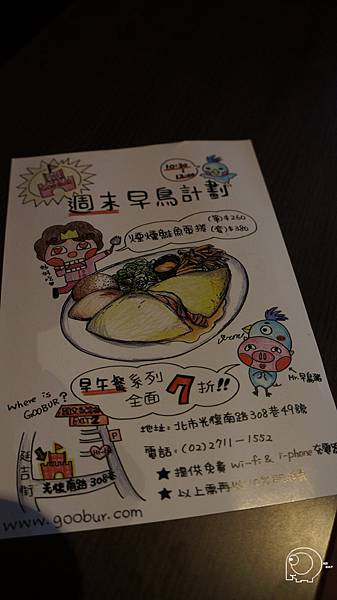 週末早鳥計劃
煙燻鮭魚蛋捲 (單)$260
(套)$380
早午餐系列
全面7折!!
Where is
GOOBUR?
延吉街
光復南路308巷
P
EXIT 2
Mr.早鳥豬
地址:北市光復南路308巷49號
電話:(02)2711-1552
★提供免費 Wi-Fi & i-phone充電
★以上需再
www.goobur.com